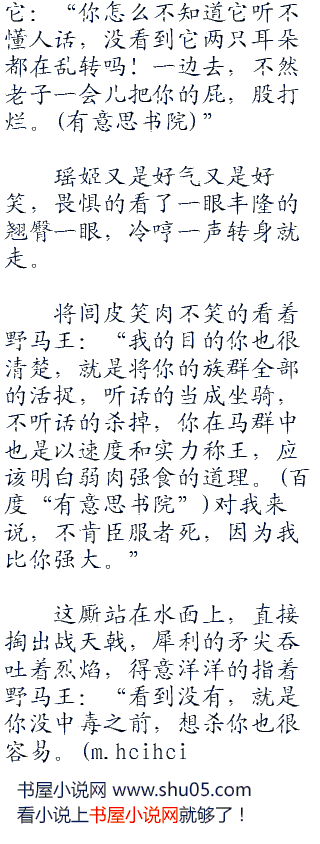 它：“你怎么不知道它听不
懂人话，没看到它两只耳朵
都在乱转吗！一边去，不然
老子一会儿把你的屁，股打
烂。(有意思书院)”
瑶姬又是好气又是好
笑，畏惧的看了一眼丰隆的
翘臀一眼，冷哼一声转身就
走。
将闾皮笑肉不笑的看着
野马王：“我的目的你也很
清楚，就是将你的族群全部
的活捉，听话的当成坐骑，
不听话的杀掉，你在马群中
也是以速度和实力称王，应
该明白弱肉强食的道理。(百
度“有意思书院”)对我来
说，不肯臣服者死，因为我
比你强大。”
这厮站在水面上，直接
掏出战天戟，犀利的矛尖吞
吐着烈焰，得意洋洋的指着
野马王：“看到没有，就是
你没中毒之前，想杀你也很
容易。(m.hcihci
书屋小说网 www.shu05.com
看小说上书屋小说网就够了！